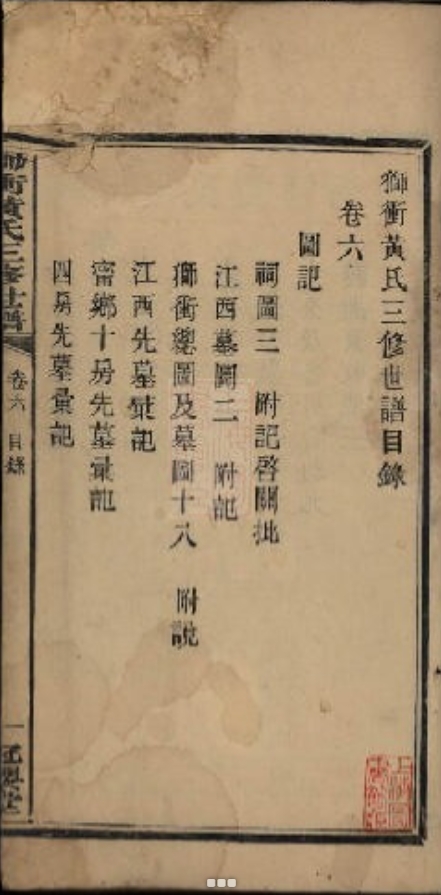 獅衝黃氏三修世譜目錄
卷六
圖記
祠圖三 附記啓關批
江西墓圖二 附記
獅衝總圖及墓圖十八 附說
江西先墓彙記
甯鄉十房先墓彙記
四房先墓彙記
獅衝黃氏三修世譜
卷六 目錄
一
堂